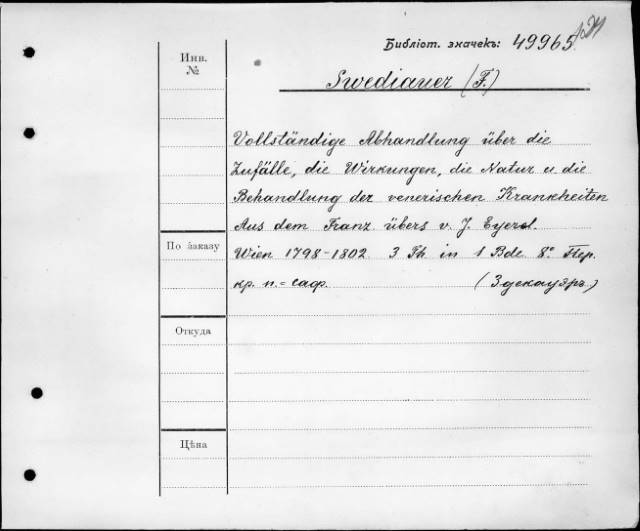 Библіот. значекъ: 49965
Инв.
№
Swediauer (F.)
Vollständige Abhandlung über die
Zufälle, die Wirkungen, die Natur u. die
Behandlung der venerischen Krankheiten
Aus dem Franz. übers v. J. Eyerel.
Wien 1798-1802. 3 Th. in 1 Bde. 8°. Пер.
кр. п.=саф. (3 декауэръ.)
По заказу
Откуда
Цѣна